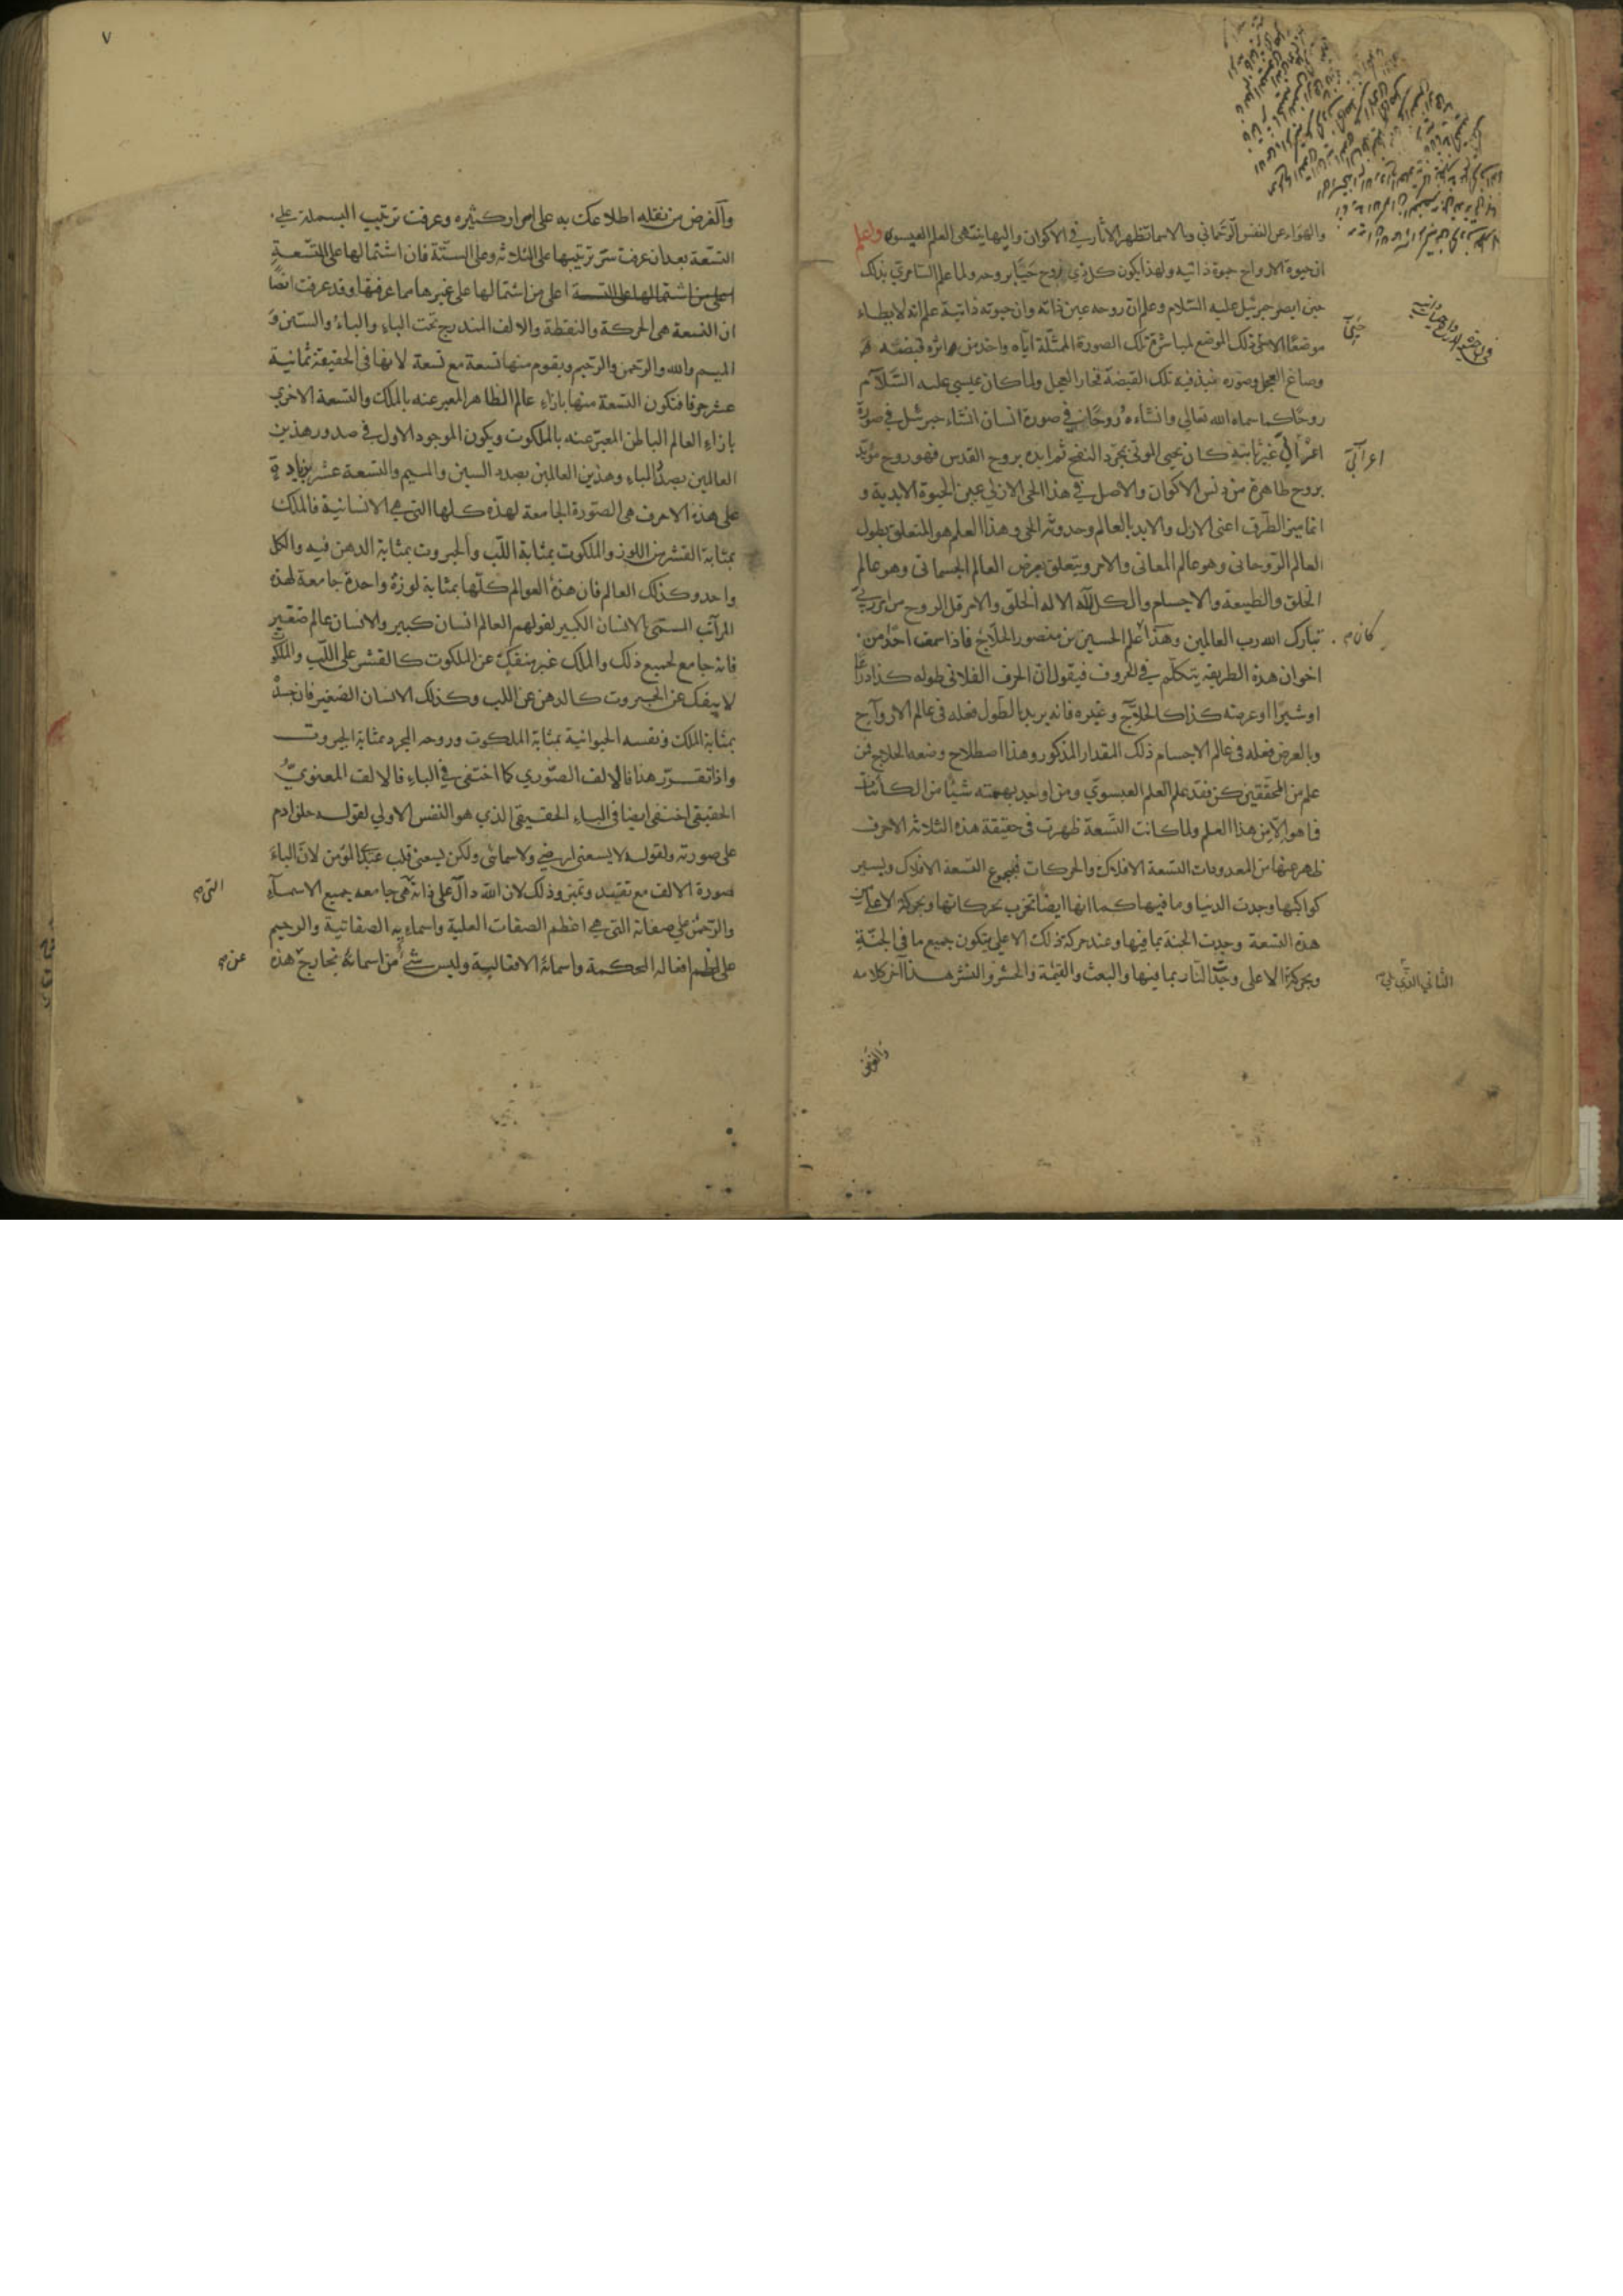 والهواء عن النفس الرحماني وبالاسما تظهر الاثار في الاكوان واليها ينتهى العلم العيسوى واعلم
ان حيوة الارواح حيوة ذاتية ولهذا يكون كل ذي روح حيّا بروحه ولما علم السامري بذلك
حين ابصر جبرئيل عليه السّلام وعلم ان روحه عين ذاته وان حيوته ذاتية علم انه لا يطاء
موضعًا الا حيي ذلك الموضع لمباشرة تلك الصورة الممثلة اياه واخذ من اثره قبضة
وصاغ العجل وصوره نبذ فيه تلك القبضة فخار العجل ولما كان عيسى عليه السّلام
روحًا كما سماه الله تعالى وانشاءه روحًا في صورة انسان انشاء جبرئيل في صورة
اعرابي غير ثابتة كان يحيى الموتى بمجرّد النفخ ثم ايده بروح القدس فهو روح مؤيّد
بروح طاهرة من دنس الاكوان والاصل في هذا الحي الازلي عين الحيوة الابدية و
انما ميز الطرف اعنى الازل والابد بالعالم وحدوثه الحي وهذا العلم هو المتعلق بطول
العالم الروحاني وهو عالم المعاني والامر ويتعلق بعرض العالم الجسماني وهو عالم
الخلق والطبيعة والاجسام والكل لله الا له الخلق والامر قل الروح من امر ربي
تبارك الله رب العالمين وهذا علم الحسين بن منصور الحلاج فاذا سمعت احدًا من
اخوان هذه الطريقة يتكلّم في الحروف فيقول ان الحرف الفلاني طوله كذا ذراعًا
او شبرًا او عرضه كذا كالحلاج وغيره فانه يريد بالطول فعله في عالم الارواح
وبالعرض فعله في عالم الاجسام ذلك المقدار المذكور وهذا اصطلاح وضعه الحلاج فمن
علم من المحققين كن فقد علم العلم العيسوي ومن اوجد بهمته شيئًا من الكائنات
فما هو الا من هذا العلم ولما كانت التسعة ظهرت في حقيقة هذه الثلاثة الاحرف
ظهر عنها من المعدودات التسعة الافلاك والحركات مجموع التسعة الافلاك وتسيير
كواكبها وجدت الدنيا وما فيها كما انها ايضًا تخرب بحركاتها وبحركة الاعلى من
هذه التسعة وجدت الجنة بما فيها وعند حركة ذلك الاعلى يتكون جميع ما في الجنّة
وبحركة الاعلى وجدت النار بما فيها والبعث والقيمة والحشر والنشر هذا آخر كلامه
حيى
اعرابي
كان
الثاني الذي يلي
والغرض
٧
والغرض من نقله اطلاعك به على اسرار كثيره وعرفت ترتيب البسملة على
التسعة بعد ان عرفت سرّ ترتيبها على الثلاثه وعلى الستّة فان اشتمالها على التسعة
اعلى من اشتمالها على غيرها مما عرفتها وقد عرفت ايضًا
ان التسعة هي الحركة والنقطة والالف المندرج تحت الباء والباء والسين و
الميم والله والرحمن والرحيم ويقوم منها تسعة مع تسعة لانها في الحقيقة ثمانية
عشر حرفا فتكون التسعة منها بازاء عالم الظاهر المعبر عنه بالملك والتسعة الاخرى
بازاء العالم الباطن المعبّر عنه بالملكوت ويكون الموجود الاول في صدور هذين
العالمين بصدد الباء وهذين العالمين بصدد السين والميم والتسعة عشر بزيادة
على هذه الاحرف هي الصّورة الجامعة لهذه كلها التي هي الانسانية فالملك
بمثابة القشر من اللوز والملكوت بمثابة اللّب والجبروت بمثابة الدهن فيه والكل
واحد وكذلك العالم فان هذه العوالم كلّها بمثابة لوزة واحدة جامعة لهذه
المراتب المسمى بالانسان الكبير لقولهم العالم انسان كبير والانسان عالم صغير
فانه جامع لجميع ذلك والملك غير منفك عن الملكوت كالقشر على اللّب والملكوت
لا ينفك عن الجبروت كالدهن عن اللب وكذلك الانسان الصغير فان جسده
بمثابة الملك ونفسه الحيوانية بمثابة الملكوت وروحه المجرد بمثابة الجبروت
واذا تقرّر هذا فالالف الصّوري كما اختفى في الباء فالالف المعنويّ
الحقيقي اختفى ايضا في الباء الحقيقي الذي هو النفس الاولي لقوله خلق ادم
على صورته ولقوله لا يسعني ارضي ولا سمائي ولكن يسعني قلب عبدي المؤمن لان الباء
صورة الالف مع تقييد وتميز وذلك لان الله دالّ على ذاته هي جامعه جميع الاسماء
والرحمن على صفاته التي هي اعظم الصفات العلية واسمايه الصفاتية والرحيم
على اعظم افعاله المحكمة واسمائه الافعالية وليس شئ من اسمائه بخارج هذه
التي
عن